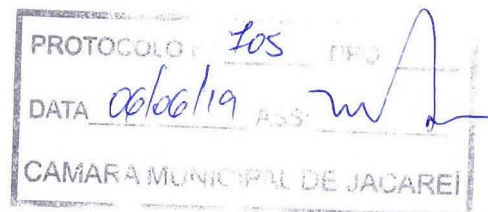 PROTOCOLO 705
DATA 06/06/19 ASS:
CAMARA MUNICIPAL DE JACAREÍ